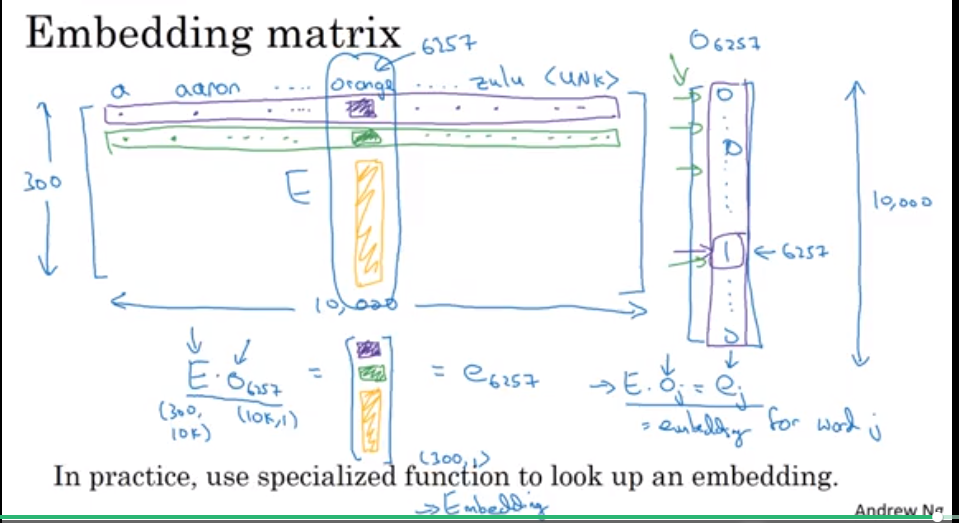 Embedding matrix
6257
O6257
a aaron .... orange .... zulu <UNK>
300
E
0
0
1 ← 6257
0
10,000
10,000
E · O6257 = [ ] = e6257
(300, 10K) (10K,1)
(300,1)
→ E · Oj = ej
= embedding for word j
In practice, use specialized function to look up an embedding.
→ Embedding
Andrew Ng